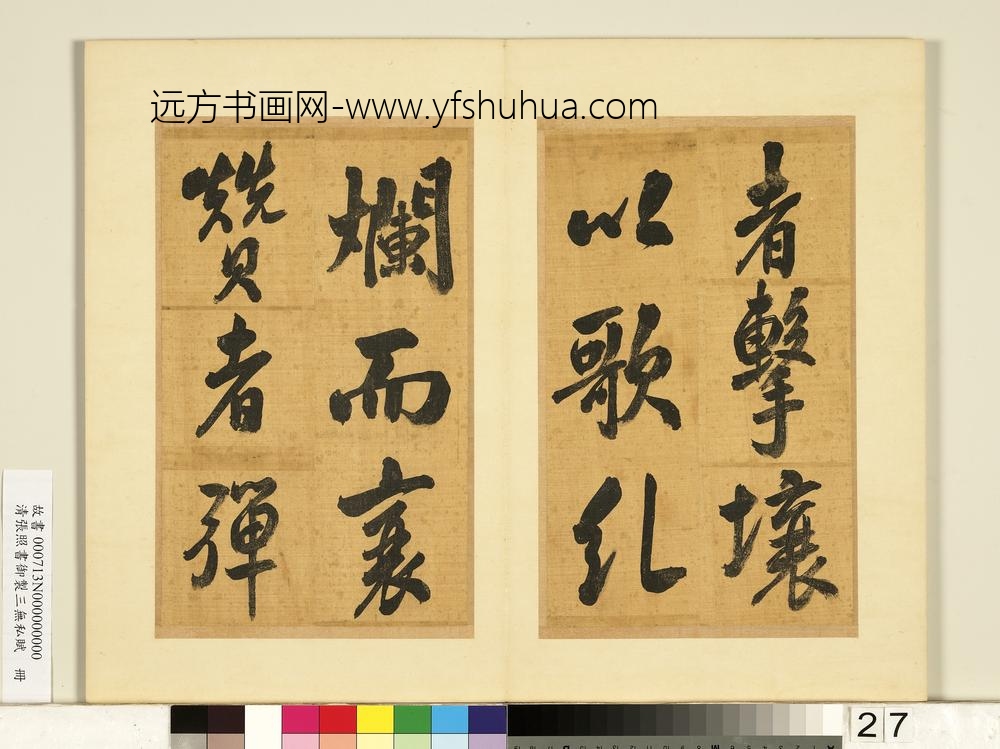 远方书画网-www.yfshuhua.com
者擊壤
以歌糺
爛而襄
贊者彈
故書000713N000000000
清張照書御製三無私賦 冊
27